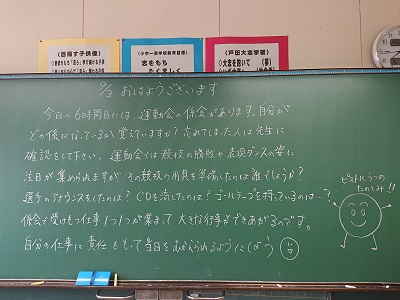 〈目指す子供像〉
小中一貫学校教育目標
志をもち
たくましく
〈戸田大志学習〉
大志を抱いて
おはようございます
今日の6時間目には、運動会の係会があります。自分が
どの係になっているか覚えていますか?忘れてしまった人は先生に
確認をして下さい。運動会では競技の勝敗や表現、ダンスの姿に
注目が集められますが その競技の用具を準備したのは誰でしょうか?
選手のアナウンスをしたのは? CDを流したのは? ゴールテープを持っているのは…?
係会で受けもつ仕事1つ1つが集まって 大きな行事ができあがるのです。
自分の仕事に責任をもって当日をむかえられるようにしよう
ピストルうつの
たのしみ!!